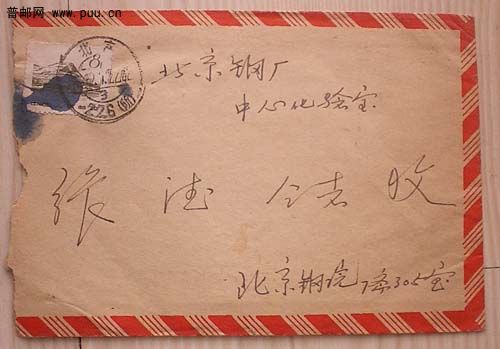 普邮网 www.puu.cn
北京
北京钢厂
中心化验室
张德 同志 收
北京钢院 7斋305室